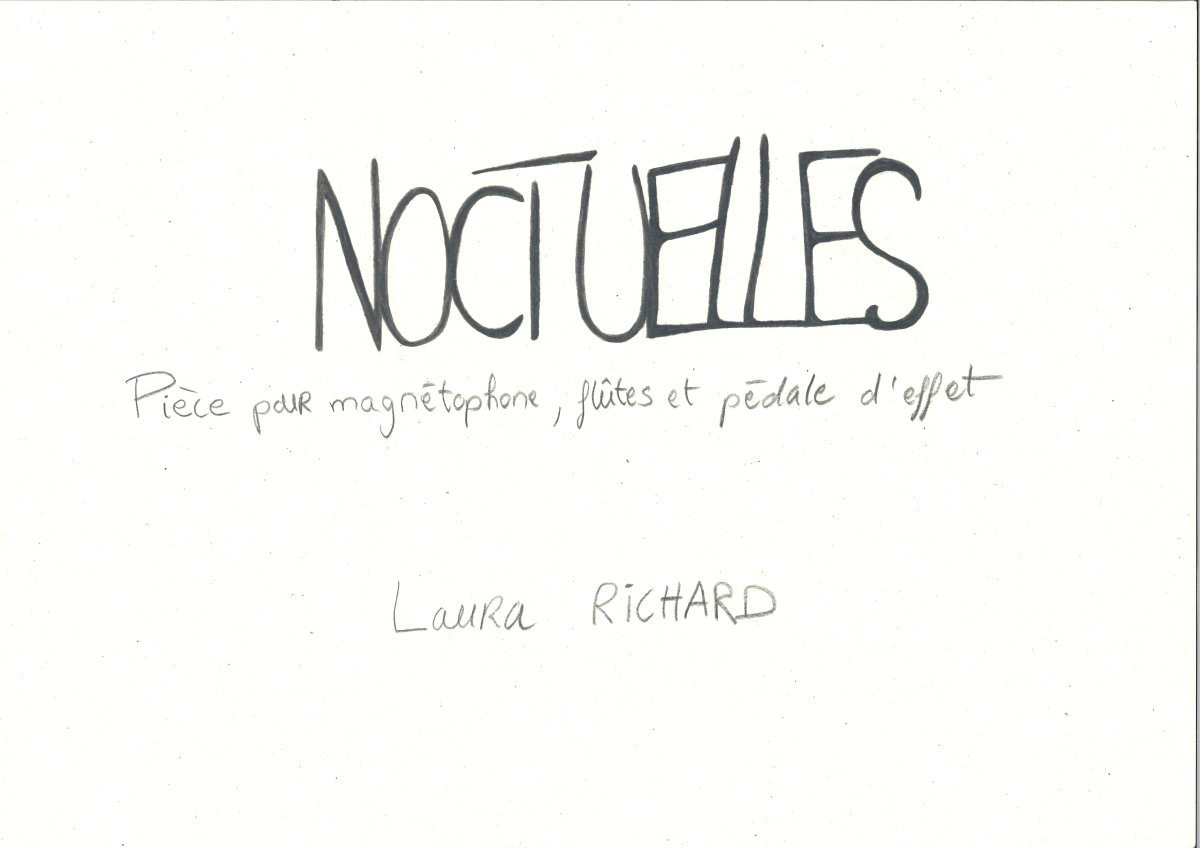 NOCTUELLES
Pièce pour magnétophone, flûtes et pédale d'effet
Laura RICHARD